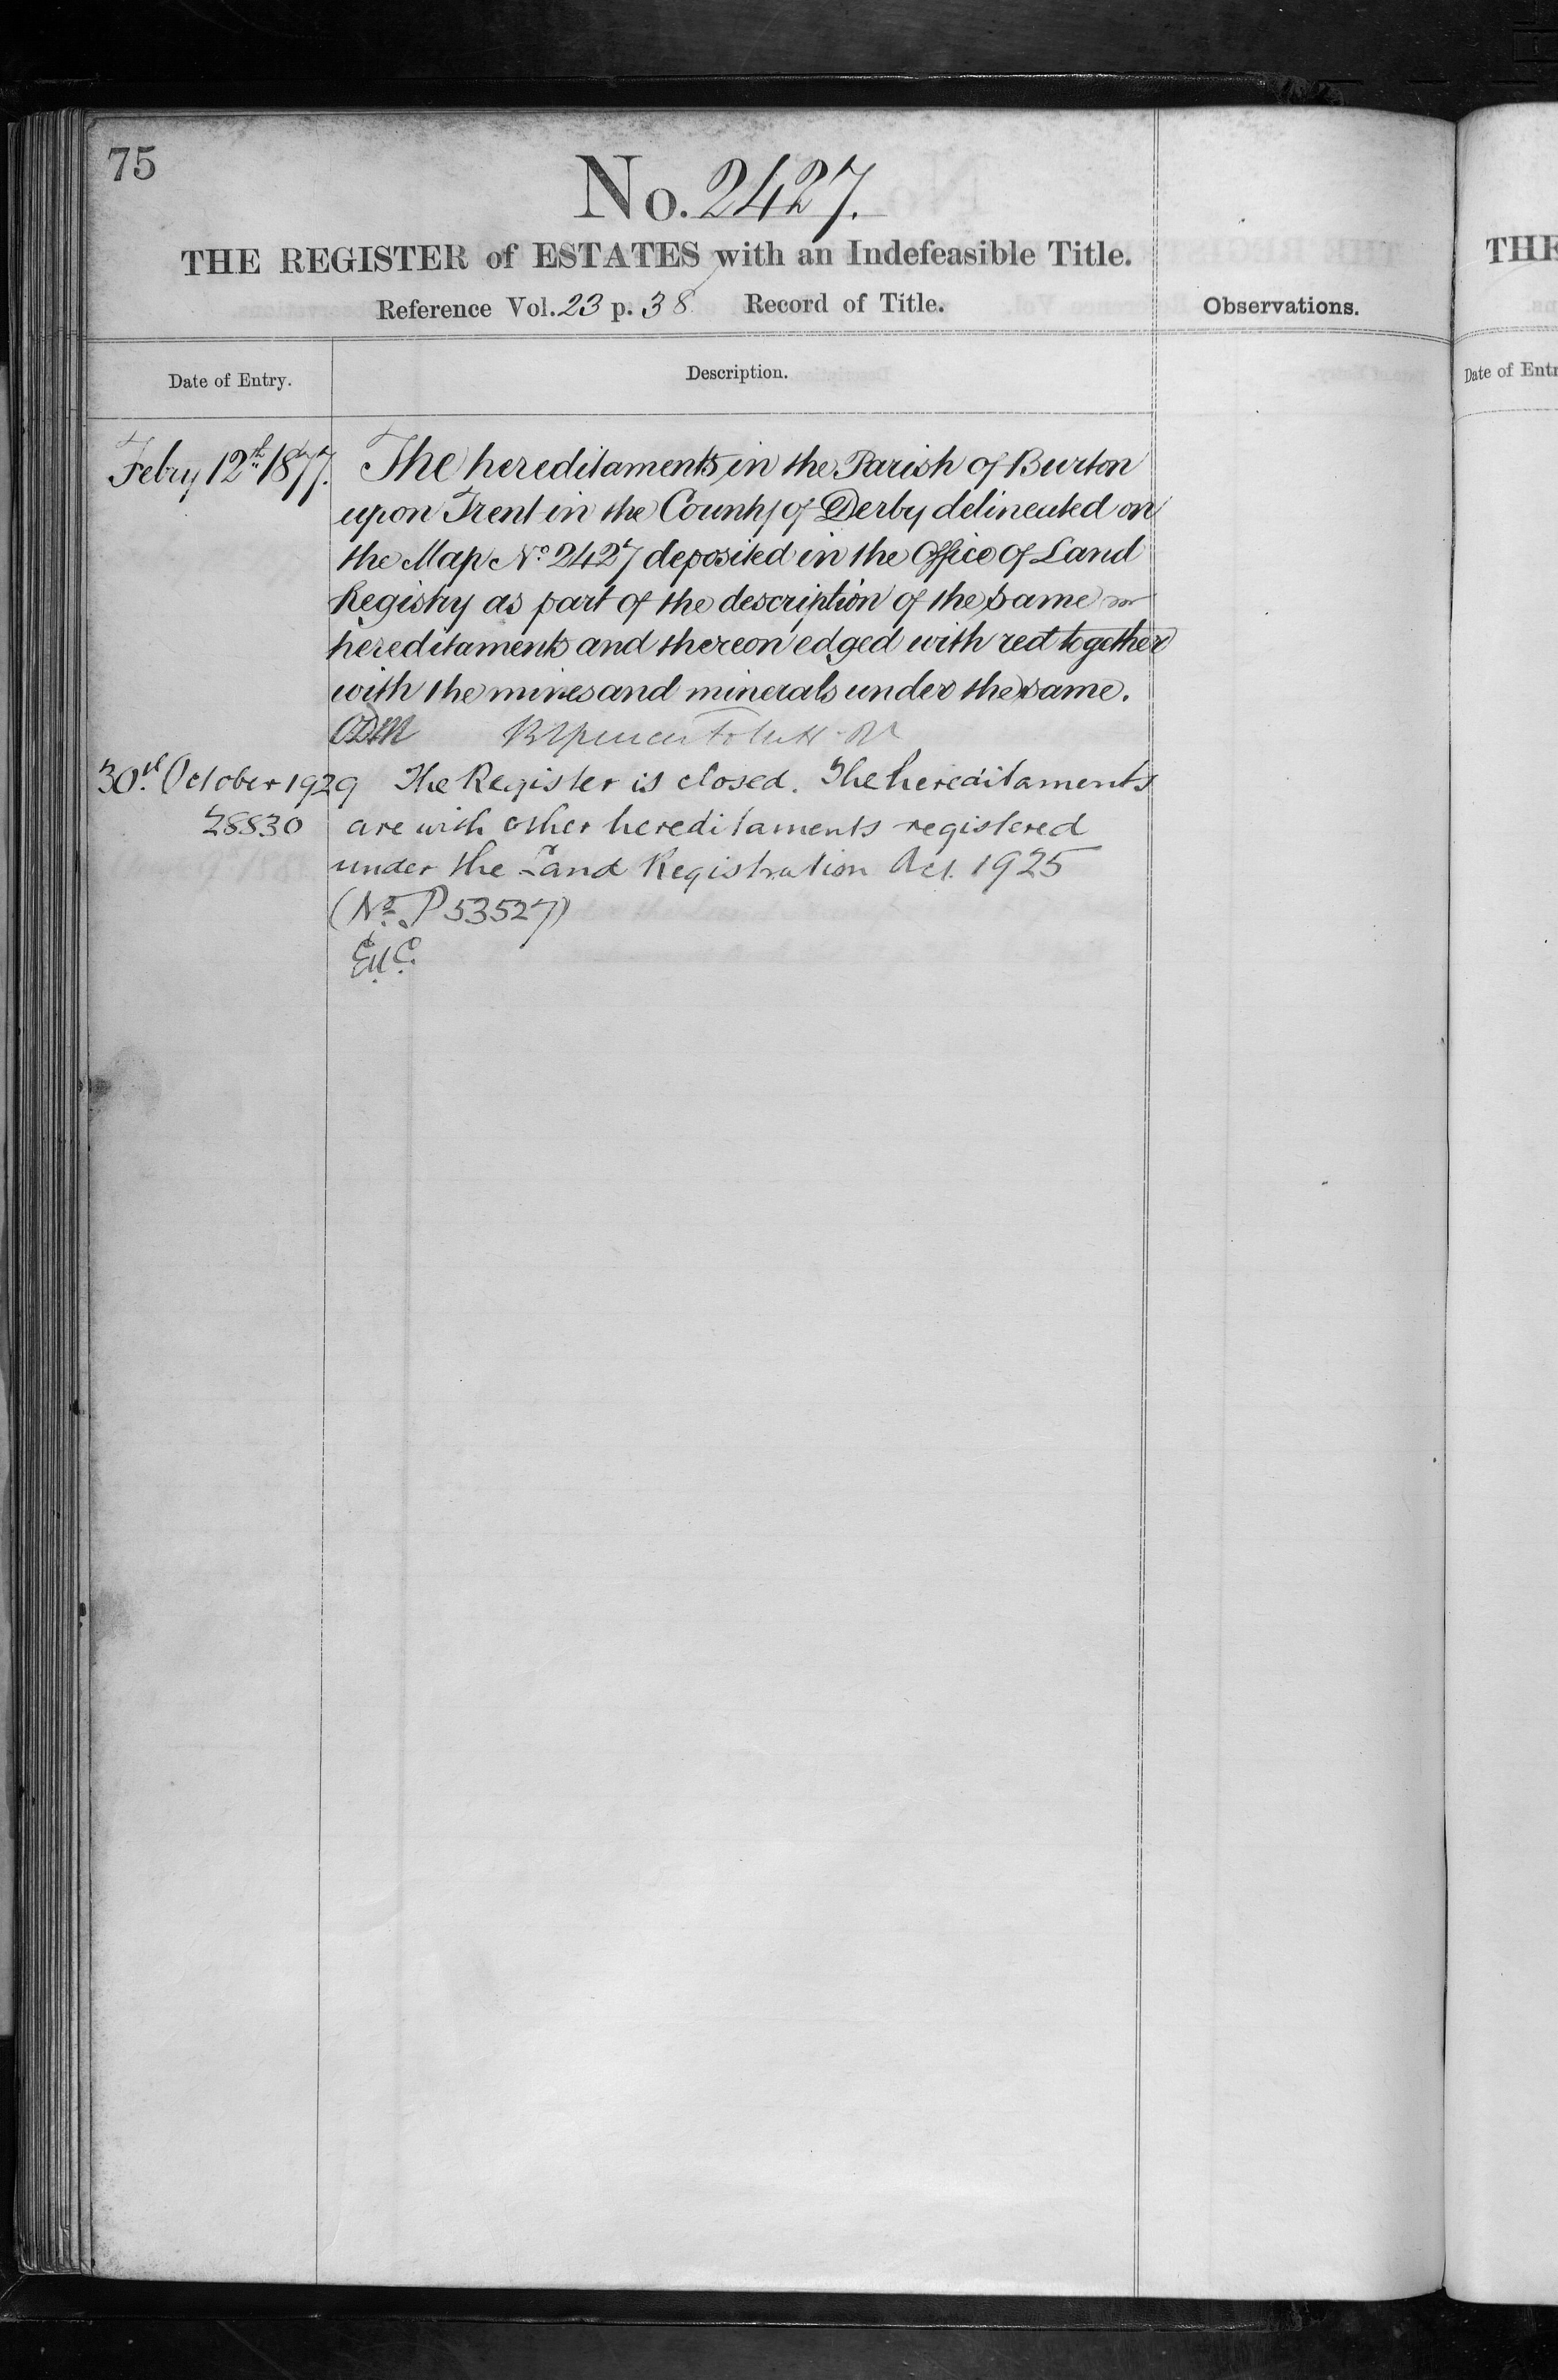 75
No. 2427.
THE REGISTER of ESTATES with an Indefeasible Title.
Reference Vol. 23 p. 38 Record of Title.
Observations.
Date of Entry.
Description.
Febry 12th 1877. The hereditaments in the Parish of Burton
upon Trent in the County of Derby delineated on
the Map No 2427 deposited in the Office of Land
Registry as part of the description of the same
hereditaments and thereon edged with red together
with the mines and minerals under the same.
30th October 1929 The Register is closed. The hereditaments
28830 are with other hereditaments registered
under the Land Registration Act. 1925
(No. P 53527)
THE
Date of Entr